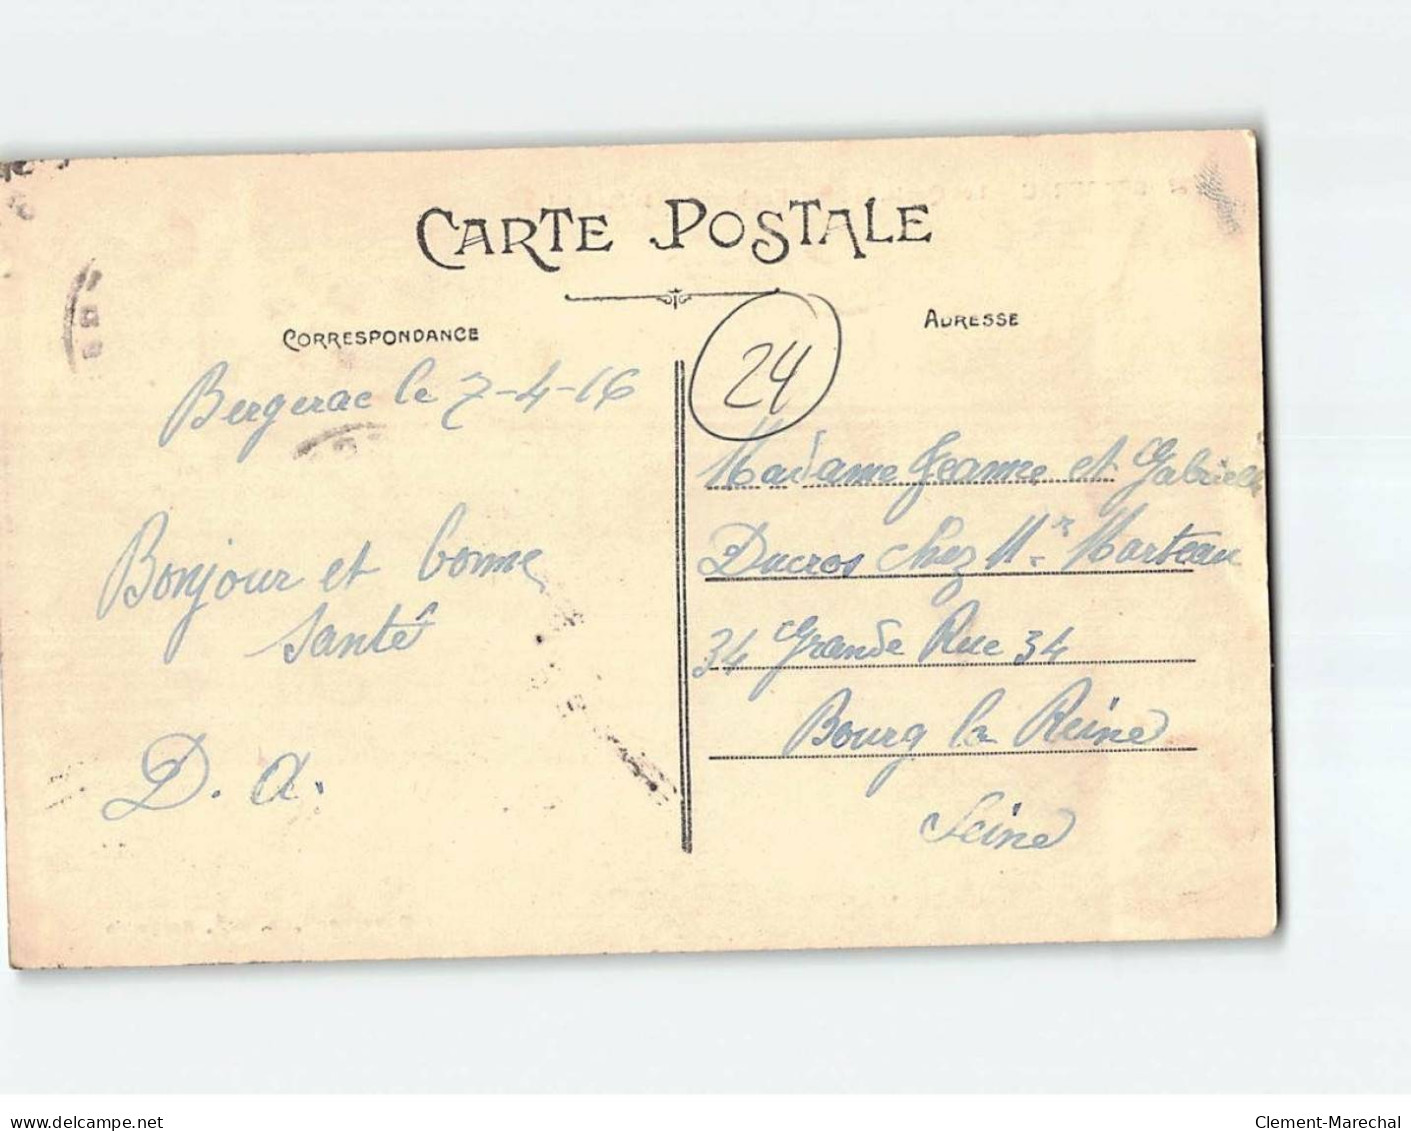 CARTE POSTALE
CORRESPONDANCE
Bergerac le 7-4-16
Bonjour et bonne
santé
D. A.
ADRESSE
24
Madame Jeanne et Gabrielle
Ducros chez Mr Marteau
34 Grande Rue 34
Bourg la Reine
Seine
delcampe.net
Clement-Marechal